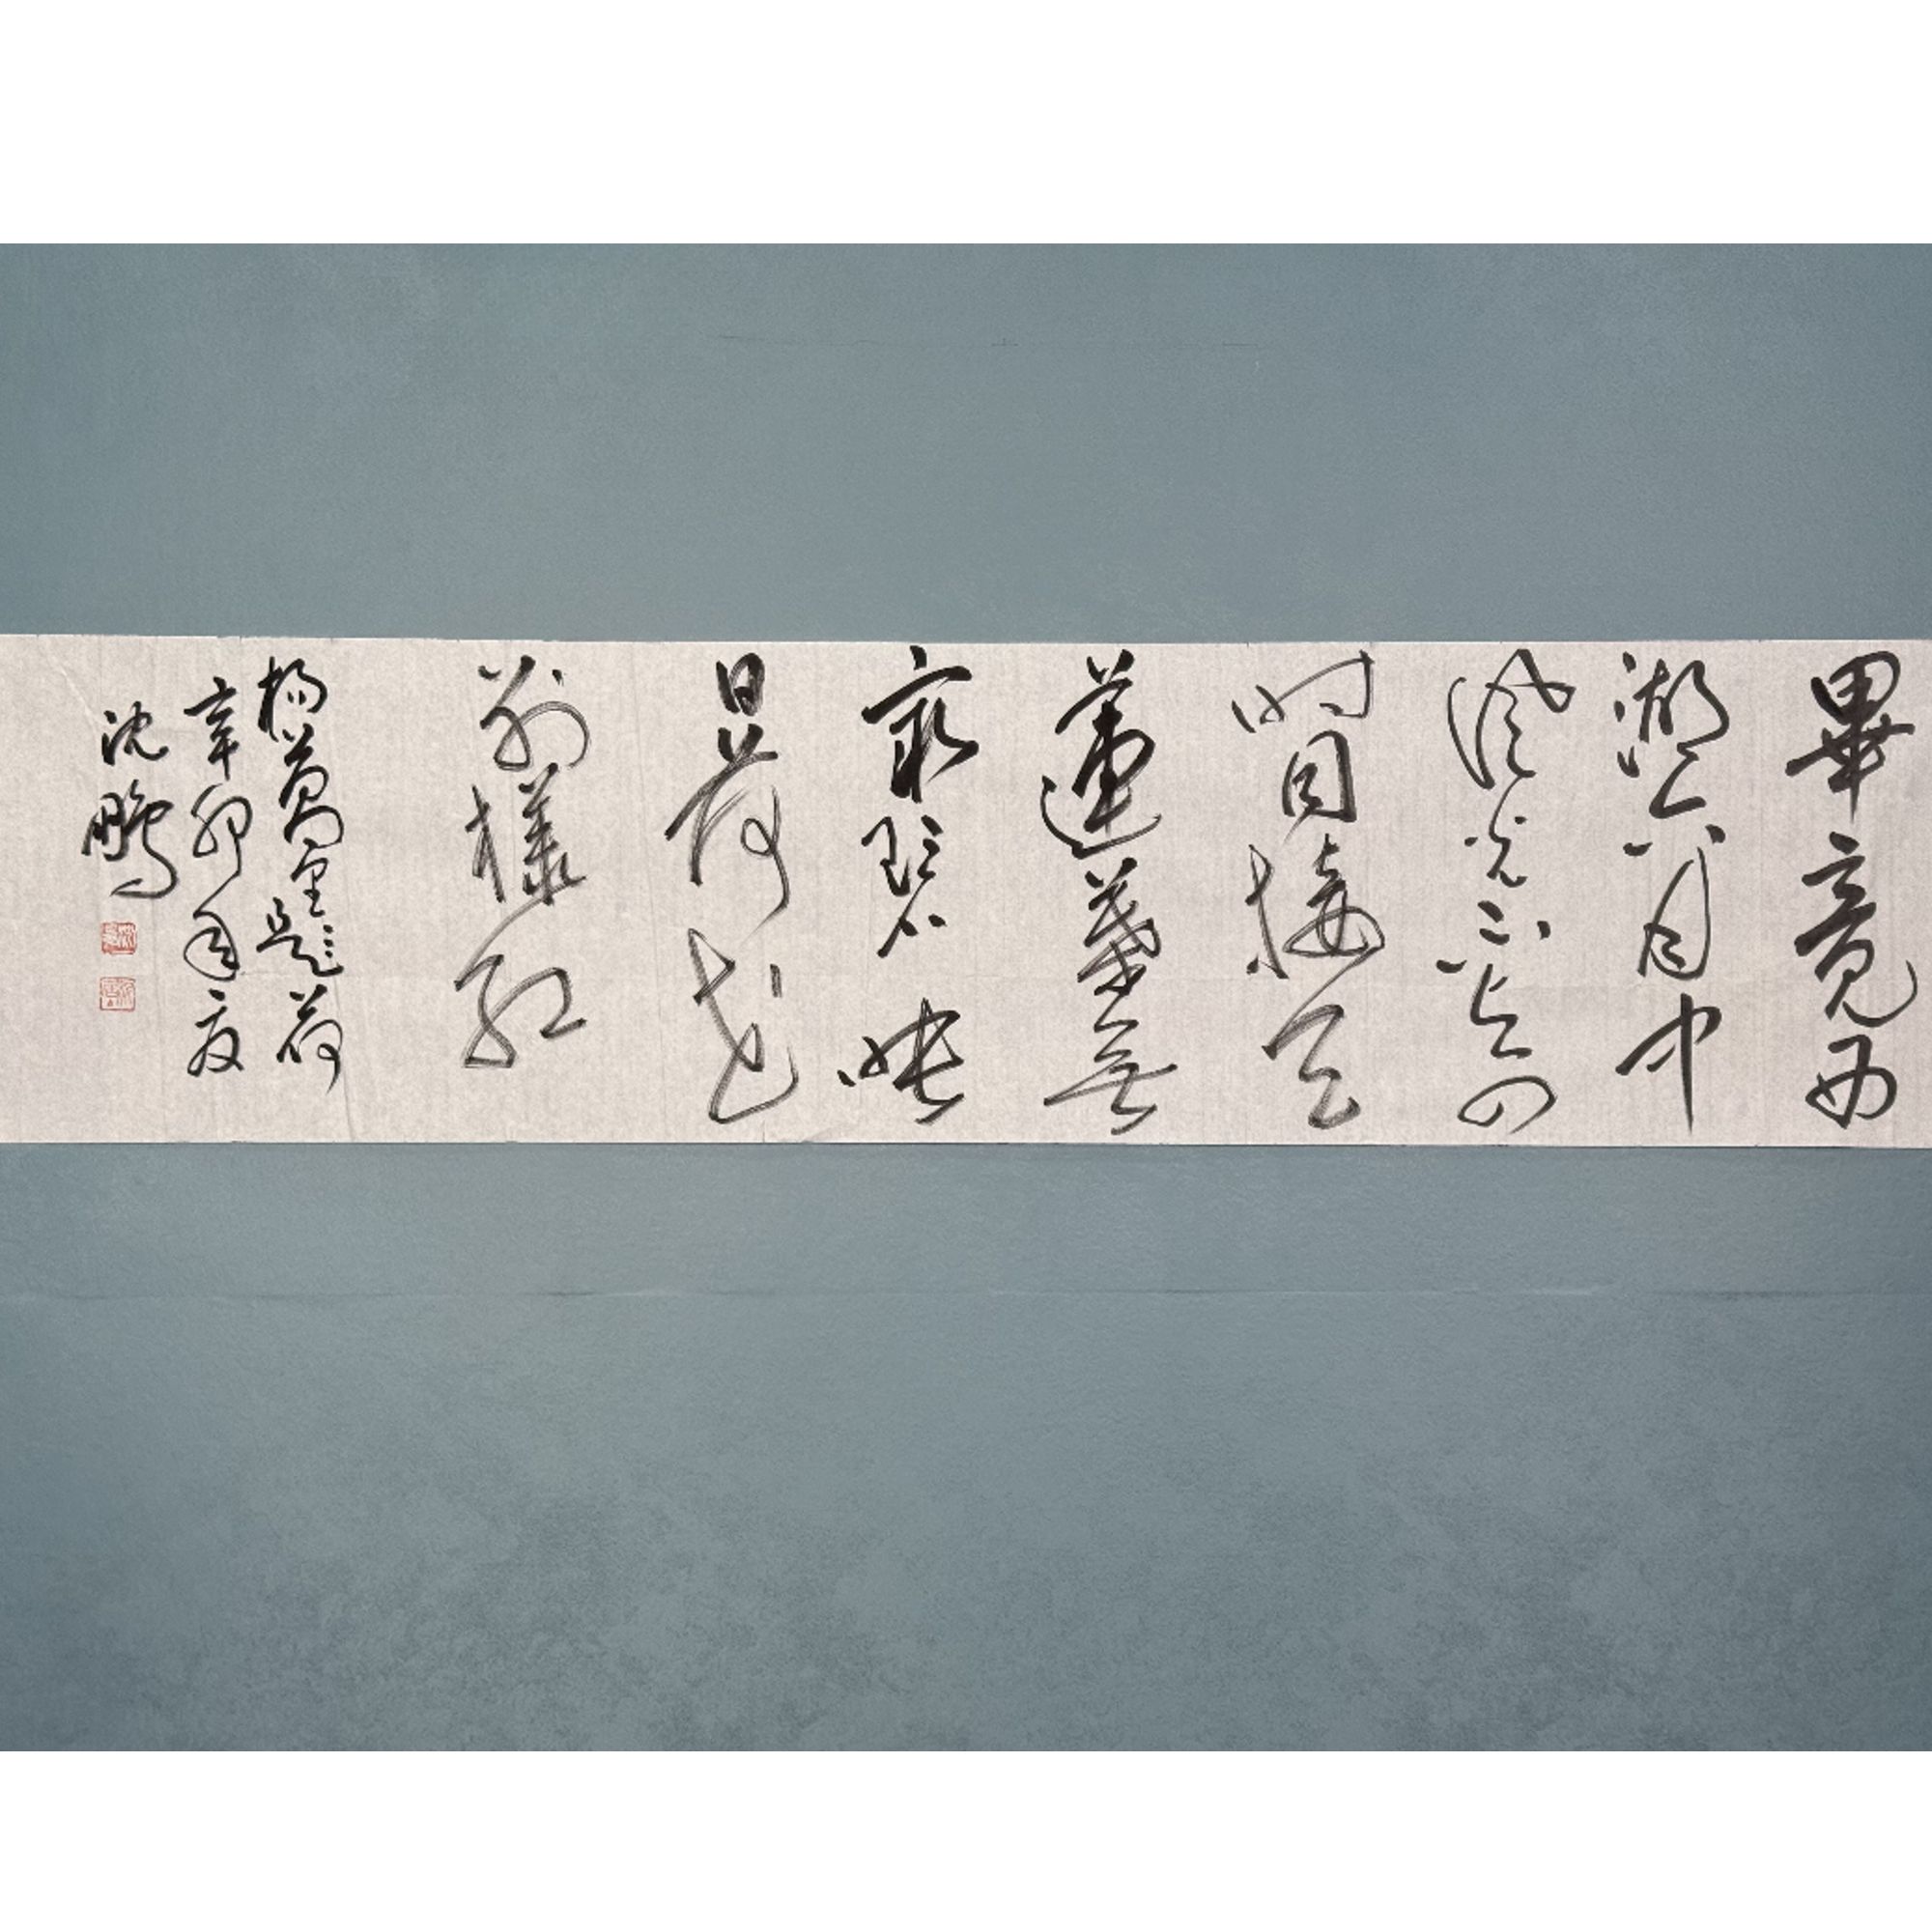 畢竟西
湖六月中
風光不與四
時同接天
蓮葉無
窮碧映
日荷花
別樣紅
楊萬里題荷
辛卯年夏
沈鵬